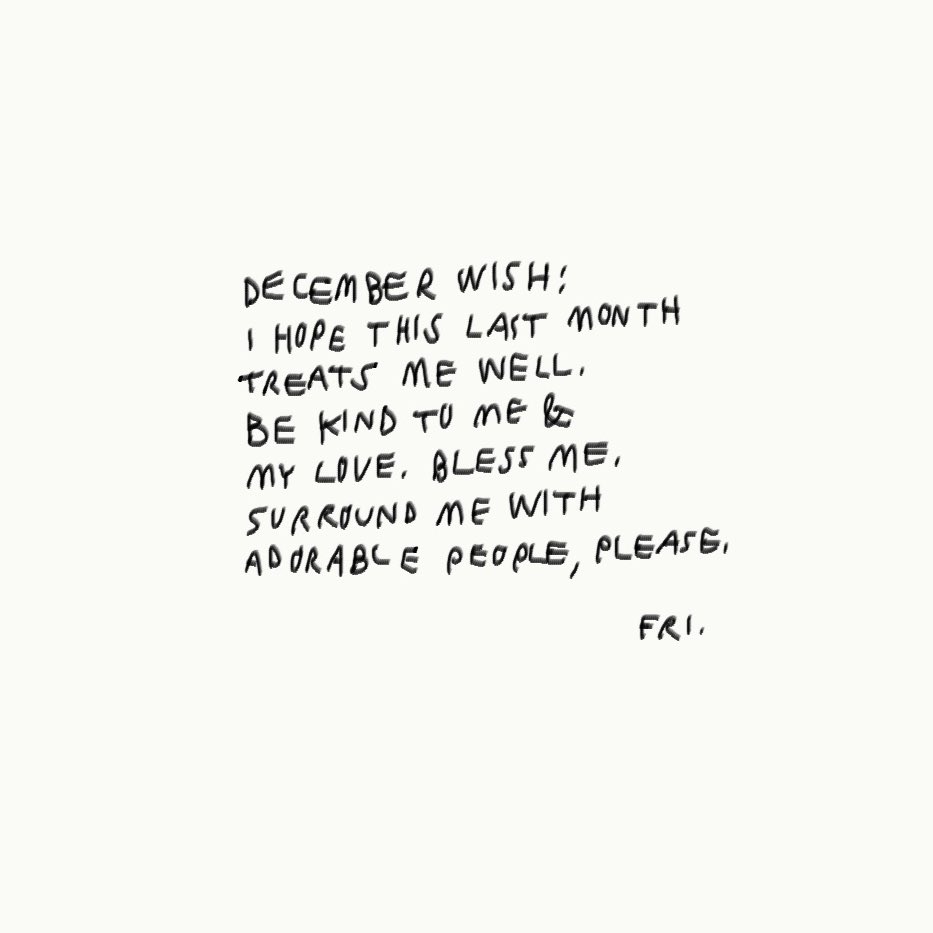 DECEMBER WISH:
I HOPE THIS LAST MONTH
TREATS ME WELL.
BE KIND TO ME &
MY LOVE. BLESS ME.
SURROUND ME WITH
ADORABLE PEOPLE, PLEASE.
FRI.